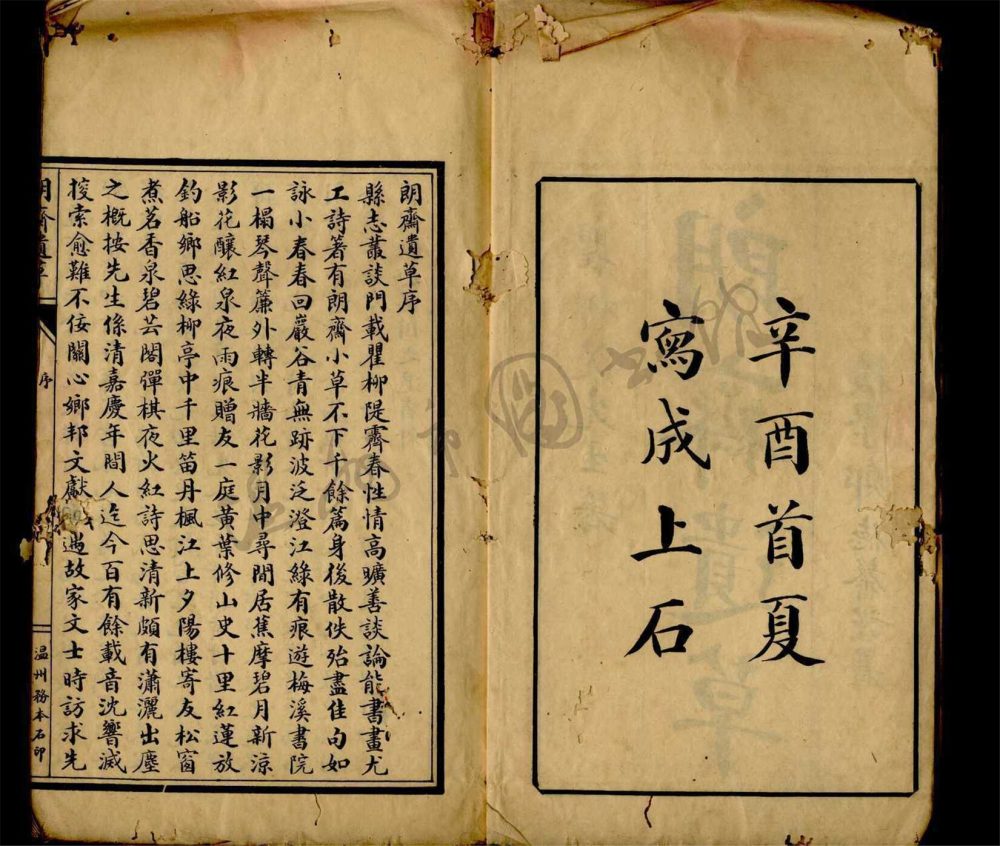 辛酉首夏
寫成上石
朗齋遺草序
縣志叢談門載瞿柳隄霽春性情高曠善談論能書畫尤
工詩著有朗齋小草不下千餘篇身後散佚殆盡佳句如
詠小春春回巖谷青無跡波泛澄江綠有痕遊梅溪書院
一榻琴聲簾外轉半牆花影月中尋間居蕉摩碧月新涼
影花釀紅泉夜雨痕贈友一庭黃葉修山史十里紅蓮放
釣船鄉思綠柳亭中千里笛丹楓江上夕陽樓寄友松窗
煮茗香泉碧芸閣彈棋夜火紅詩思清新頗有瀟灑出塵
之概按先生係清嘉慶年間人迄今百有餘載音沈響滅
搜索愈難不佞關心鄉邦文獻過故家文士時訪求先
朗齋遺草
序
温州務本石印